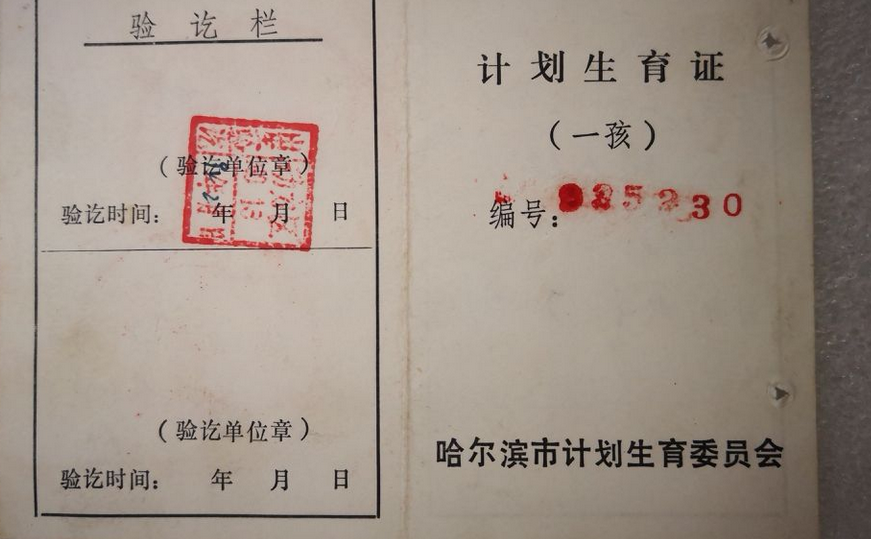 验讫栏
(验讫单位章)
验讫时间： 年 月 日
(验讫单位章)
验讫时间： 年 月 日
计划生育证
(一孩)
编号：
30
哈尔滨市计划生育委员会